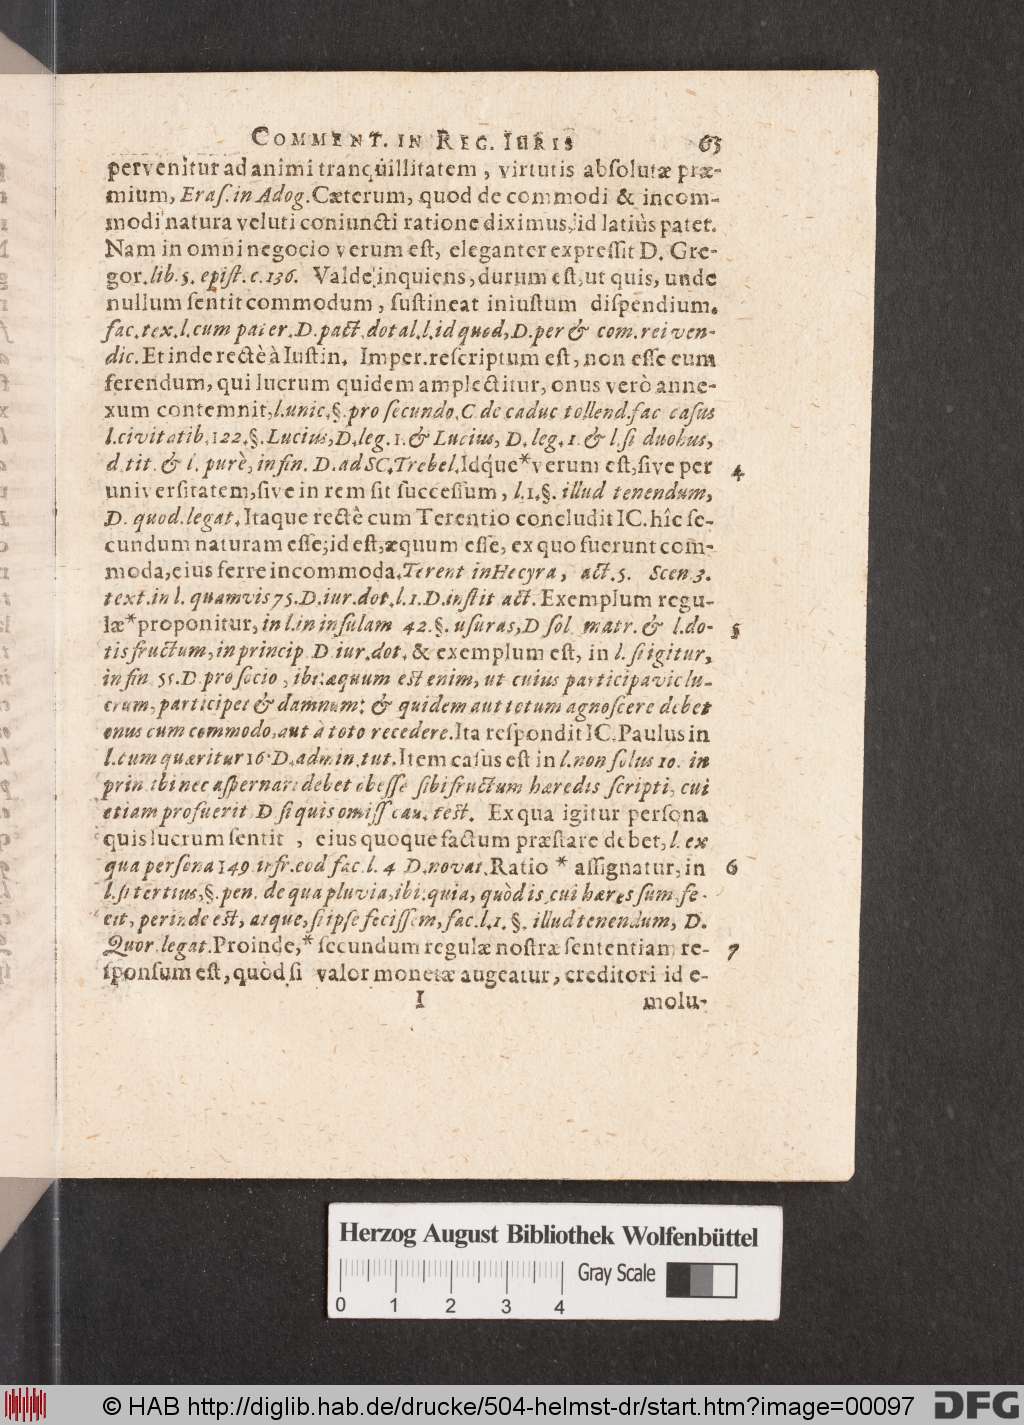 COMMENT. IN REG. IURIS 65
pervenitur ad animi tranquillitatem, virtutis absolutæ præ-
mium, Eras. in Adog. Cæterum, quod de commodi & incom-
modi natura veluti coniuncti ratione diximus, id latiùs patet.
Nam in omni negocio verum est, eleganter expressit D. Gre-
gor. lib. 5. epist. c. 136. Valde, inquiens, durum est, ut quis, unde
nullum sentit commodum, sustineat iniustum dispendium.
fac. tex. l. cum pater. D. pact. dotal. l. id quod, D. per & com. rei ven-
dic. Et inde rectè à Iustin. Imper. rescriptum est, non esse eum
ferendum, qui lucrum quidem amplectitur, onus verò anne-
xum contemnit, l. unic. §. pro secundo. C de caduc tollend. fac casus
l. civitatib. 122. §. Lucius, D. leg. 1. & Lucius, D. leg. 1. & l. si duobus,
d. tit. & l. purè, in fin. D. ad SC. Trebel. Idq́ue* verum est, sive per 4
universitatem, sive in rem sit successum, l. 1. §. illud tenendum,
D. quod. legat. Itaque rectè cum Terentio concludit IC. hîc se-
cundum naturam esse; id est, æquum esse, ex quo fuerunt com-
moda, eius ferre incommoda. Terent in Hecyra, act. 5. Scen 3.
text. in l. quamvis 75. D. iur. dot. l. 1. D. instit act. Exemplum regu-
læ* proponitur, in l. in insulam 42. §. usuras, D sol matr. & l. do- 5
tis fructum, in princip D iur. dot. & exemplum est, in l. si igitur,
in fin 55. D pro socio, ibi: æquum est enim, ut cuius participavit lu-
crum, participet & damnum: & quidem aut totum agnoscere debet
onus cum commodo, aut à toto recedere. Ita respondit IC. Paulus in
l. cum quæritur 16. D. admin. tut. Item casus est in l. non solus 10. in
prin ibi nec aspernari debet obesse sibi fructum hæredis scripti, cui
etiam profuerit D si quis omiss cau. test. Ex qua igitur persona
quis lucrum sentit, eius quoque factum præstare debet, l. ex
qua persona 149 infr. eod fac. l. 4 D. novat. Ratio* assignatur, in 6
l. si tertius, §. pen. de qua pluvia, ibi: quia, quòd is, cui hæres sum fe-
cit, perinde est, atque, si ipse fecissem, fac. l. 1. §. illud tenendum, D.
Quor. legat. Proinde,* secundum regulæ nostræ sententiam re- 7
sponsum est, quòd si valor monetæ augeatur, creditori id e-
I molu-
Herzog August Bibliothek Wolfenbüttel
Gray Scale
0 1 2 3 4
© HAB http://diglib.hab.de/drucke/504-helmst-dr/start.htm?image=00097
DFG